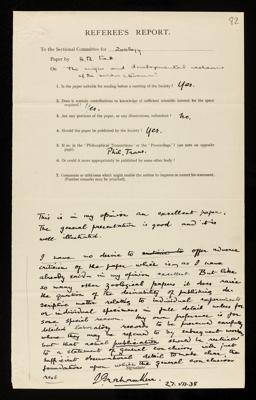 92
REFEREE'S REPORT.
To the Sectional Committee for Zoology
Paper by H.B. Fell
On "The origin and developmental mechanics
of the avian sternum"
1. Is the paper suitable for reading before a meeting of the Society? Yes.
2. Does it contain contributions to knowledge of sufficient scientific interest for the space
required? Yes.
3. Are any portions of the paper, or any illustrations, redundant? No.
4. Should the paper be published by the Society? Yes.
5. If so, in the "Philosophical Transactions" or the "Proceedings"? (see note on opposite
page). Phil. Trans.
6. Or could it more appropriately be published by some other body?
7. Comments or criticisms which might enable the author to improve or correct his statement.
(Further remarks may be attached).
This is in my opinion an excellent paper.
The general presentation is good and it is
well illustrated.
I have no desire to offer adverse
criticism of the paper which is, as I have
already said in my opinion excellent. But like
so many other zoological papers it does raise
the question of the desirability of publishing
descriptive matter relating to individual experiments
or individual specimens in full detail unless for
some special reason. My own preference is for
detailed laboratory records to be preserved carefully
where they may be referred to by subsequent workers
but that actual publication should be restricted
to a statement of general conclusions with just
sufficient observational detail to make clear the
foundations upon which the general conclusions
rest
Signature
J Graham Kerr 27.VII.38